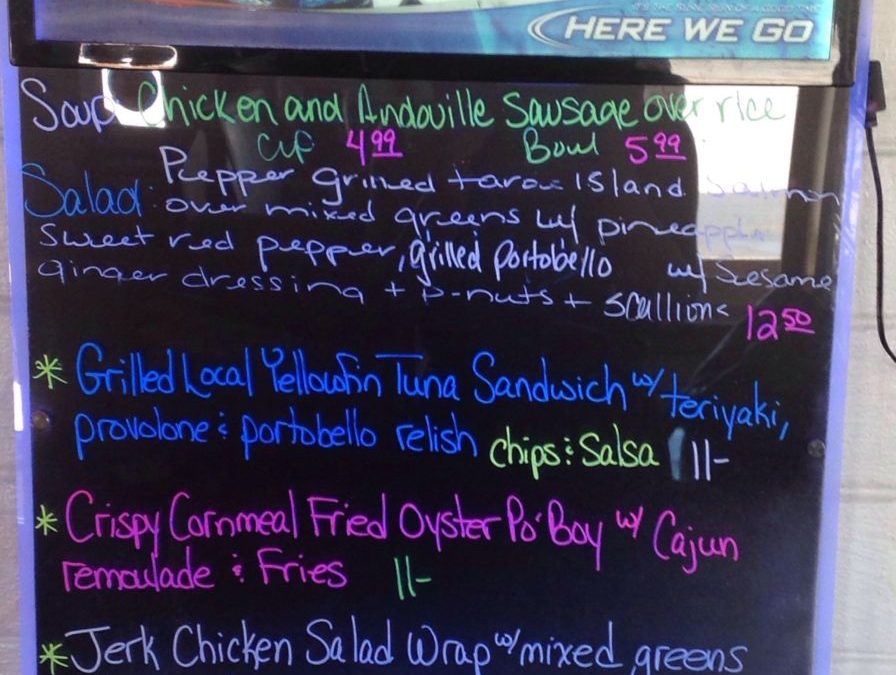 IT'S THE SURE SIGN OF A GOOD TIME
HERE WE GO
Soup: Chicken and Andouille Sausage over rice
Cup 4.99 Bowl 5.99
Pepper grilled Faroe Island Salmon
Salad: over mixed greens w/ pineapple
Sweet red pepper, grilled Portobello w/ Seesame
ginger dressing + P-nuts + scallions
12.50
* Grilled Local Yellowfin Tuna Sandwich w/ teriyaki,
provolone & portobello relish chips & Salsa 11-
* Crispy Cornmeal Fried Oyster Po' Boy w/ Cajun
remoulade & Fries 11-
* Jerk Chicken Salad Wrap w/ mixed greens